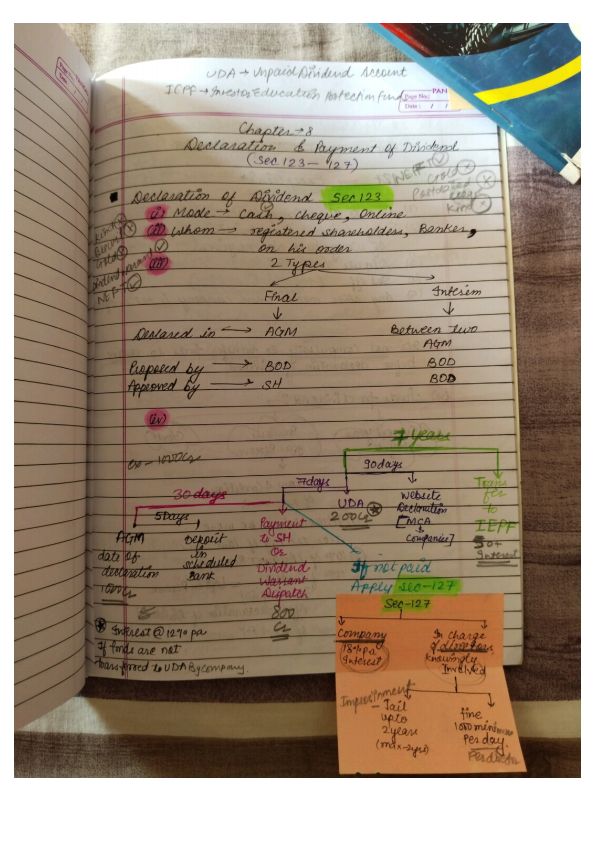 UDA → Unpaid Dividend Account
IEPF → Investor Education Protection Fund
PAN
Page No.:
Date: / /
Chapter → 8
Declaration & Payment of Dividend
(Sec 123 - 127)
NEFT
Gold
Postdated
Kind
Declaration of Dividend Sec 123
(i) Mode → Cash, Cheque, Online
(ii) Whom → registered shareholders, Banker,
on his order
Gold
NEFT
(iii) 2 Types
Final Interim
Declared in ↔ AGM Between two
AGM
Proposed by → BOD BOD
Approved by → SH BOD
(iv)
7 years
90 days
7 days
30 days
5 Days
AGM
date of
declaration
1000Cr
Deposit
in
scheduled
Bank
Payment
to SH
Or
Dividend
Warrant
Dispatch
800
Cr
UDA
200Cr
Website
Declaration
[MCA
Companies]
Trans
fer
to
IEPF
Interest
If not paid
Apply Sec-127
* Interest @ 12% pa
If funds are not
transferred to UDA By company.
Sec-127
Company
18% pa
Interest
In Charge
of directors
knowingly
Involved
Imprisonment
- Jail
upto
2 years
(max-2yrs)
fine
1000 minimum
Per day.